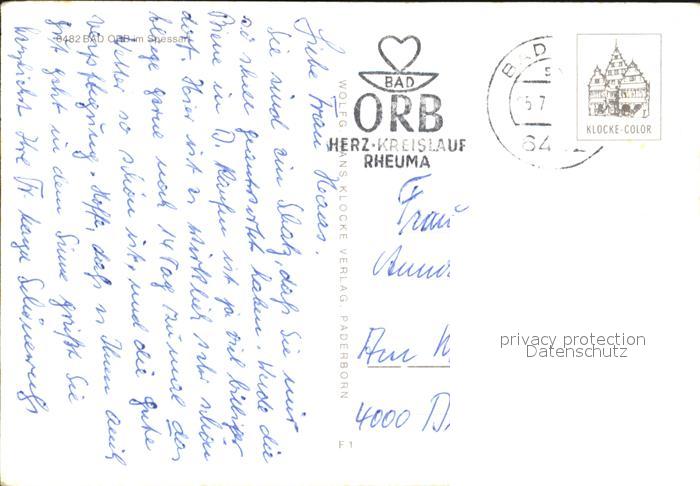 6482 BAD ORB im Spessart
Liebe Frau Haas.
Sie sind ein Schatz, daß Sie mir
so schnell geantwortet haben. Werde die
Birne in D. kaufen ist ja viel billiger
dort. Hier ist es wirklich sehr schön
bleibe gerne noch 14 Tag zumal das
Wetter so schön ist, und die gute
Verpflegung. Hoffe, daß es Ihnen auch
gut geht in dem Sinne grüßt Sie
herzlichst Ihre
WOLFGANG HANS KLOCKE VERLAG, PADERBORN
F 1
BAD
ORB
HERZ·KREISLAUF
RHEUMA
BAD
5.7
64
KLOCKE-COLOR
Frau
Am
4000 D
privacy protection
Datenschutz